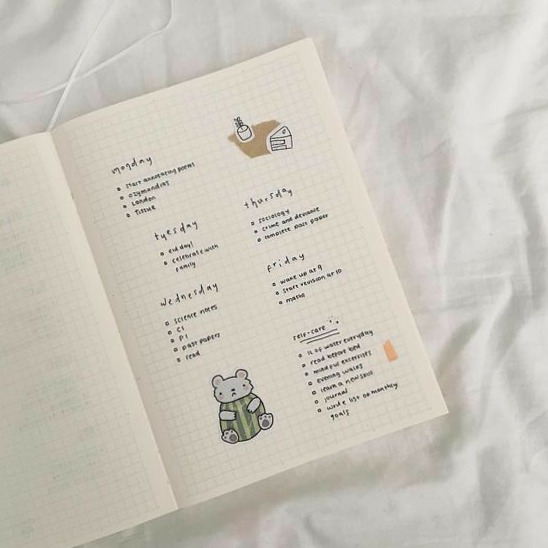 monday
start annotating poems
ozymandias
London
Tissue
tuesday
eid day!
celebrate with
family
wednesday
science notes
C1
P1
past papers
read
thursday
sociology
crime and deviance
complete past paper
friday
wake up at 9
start revision at 10
maths
self-care
1L of water everyday
read before bed
mindful exercises
evening walks
learn a new skill
journal
write list on monthly
goals